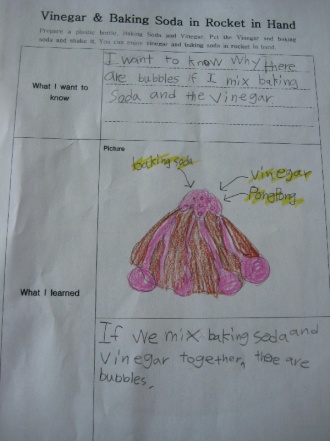 Vinegar & Baking Soda in Rocket in Hand
Prepare a plastic bottle, Baking Soda and Vinegar. Put the Vinegar and baking
soda and shake it. You can enjoy vinegar and baking soda in rocket in hand.
What I want to
know
I want to know why there
are bubbles if I mix baking
Soda and the vinegar
Picture
baking soda
vinegar
PongPong
What I learned
If we mix baking soda and
vinegar together, there are
bubbles.